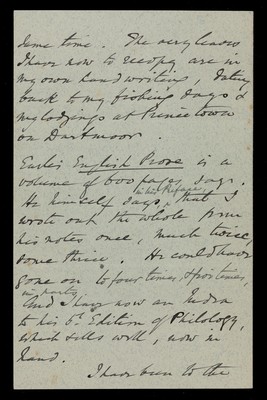 same time. The very leaves
I have now to recopy are in
my own handwriting, dating
back to my fishing days &
my lodgings at Princetown
on Dartmoor.
Earle's English Prose is a
volume of 600 pages says.
He himself says, in his Preface, that I
wrote out the whole from
his notes once, much twice,
some thrice. He could have
gone on to four times, & five times,
in parts.
And I lay now an Index
to his 5th Edition of Philology,
which sells well, now in
hand.
I have been to the